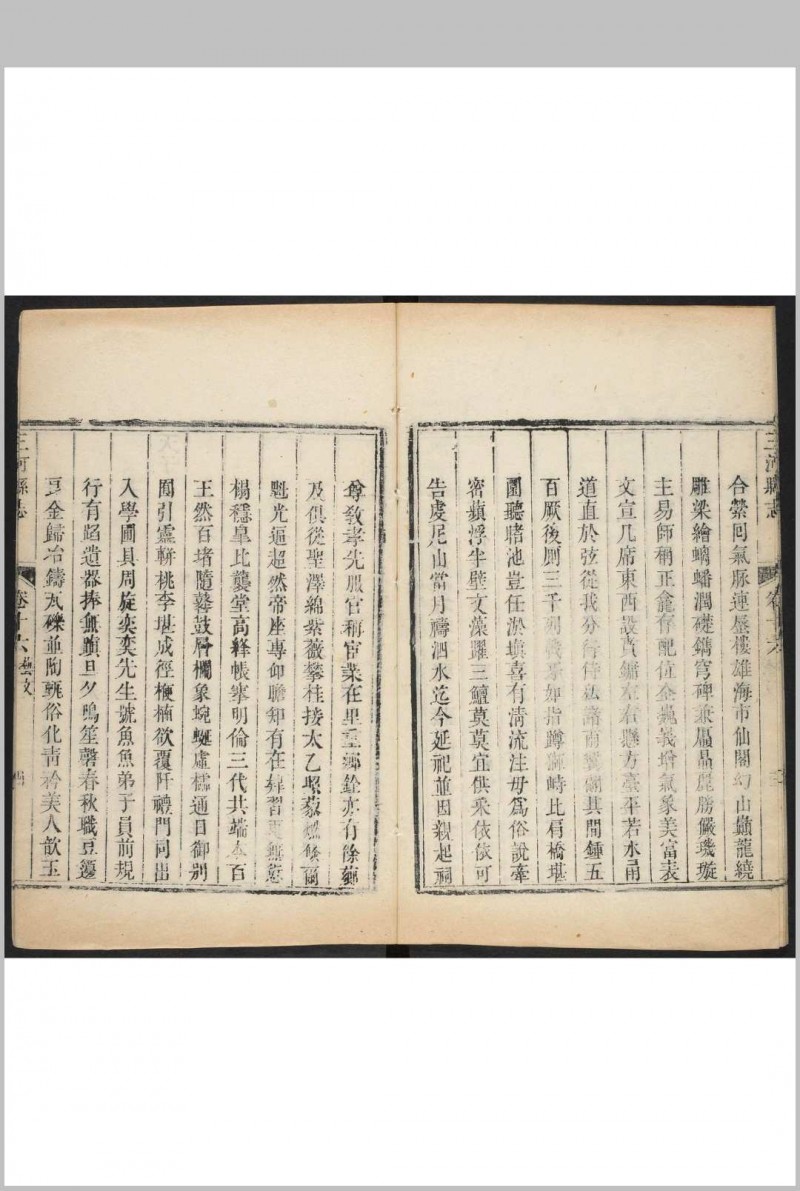 三河縣志 卷十六
合縈囘氣脈連蜃樓雄海市仙閣幻山巔龍繞
雕梁繪螭蟠潤礎鐫穹碑兼贔屭麗勝儼璣璇
主易師稱正龕存配位金 義增氣象美富表
文宣几席東西設賁鏞左右懸方臺平若水甬
道直於弦從我分行侍 諸兩 其間鍾五
百厥後則三千 指蹲獅峙比肩橋堪
圜聽睹池豈任淤塡喜有淸流注毋爲俗說牽
密蘋浮半壁文藻躍三鱣莫莫宜供采依依可
告虔尼山當月禱泗水迄今延祀並因親起祠
尊敎孝先服官稱宦業在里重鄉銓亦有餘鄉
及俱從聖澤綿紫薇攀桂接太乙照藜燃 爾
魁光逼超然帝座專仰瞻知有在肄習更無愆
楊穩皐比襲堂高絳帳搴明倫三代共端本百
王然百堵隨鼛鼓層櫩象蜿蜒虛櫺通日御別
囿引靈軿桃李堪成徑楩楠欲覆阡禮門同出
入學圃具周旋奕奕先生號魚魚弟子員前規
行有蹈遺器捧無躓旦夕鳴笙磬春秋職豆籩
頁金歸冶鑄瓦礫並陶甄俗化靑衿美人歆玉
三河縣志 卷十六 藝文 四